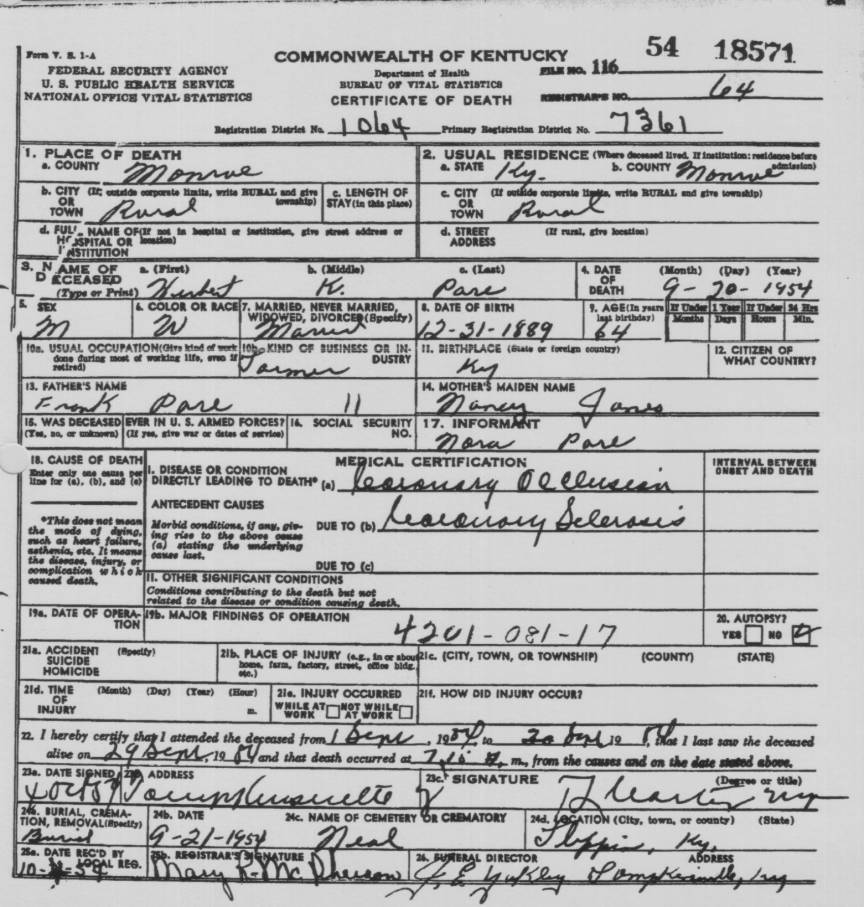 Form V. S. 1-A
FEDERAL SECURITY AGENCY
U. S. PUBLIC HEALTH SERVICE
NATIONAL OFFICE VITAL STATISTICS
COMMONWEALTH OF KENTUCKY
Department of Health
BUREAU OF VITAL STATISTICS
CERTIFICATE OF DEATH
FILE NO. 116 54 18571
REGISTRAR'S NO. 64
Registration District No. 1064 Primary Registration District No. 7361
1. PLACE OF DEATH
a. COUNTY Monroe
2. USUAL RESIDENCE (Where deceased lived. If institution: residence before admission)
a. STATE Ky. b. COUNTY Monroe
b. CITY (If outside corporate limits, write RURAL and give township)
OR TOWN Rural
c. LENGTH OF STAY (in this place)
c. CITY (If outside corporate limits, write RURAL and give township)
OR TOWN Rural
d. FULL NAME OF (If not in hospital or institution, give street address or location)
HOSPITAL OR INSTITUTION
d. STREET ADDRESS (If rural, give location)
3. NAME OF DECEASED (Type or Print)
a. (First) Herbert b. (Middle) K. c. (Last) Pare
4. DATE OF DEATH (Month) (Day) (Year) 9-20-1954
5. SEX M
6. COLOR OR RACE W
7. MARRIED, NEVER MARRIED, WIDOWED, DIVORCED (Specify) Married
8. DATE OF BIRTH 12-31-1889
9. AGE (In years last birthday) 64
If Under 1 Year Months Days
If Under 24 Hrs Hours Min.
10a. USUAL OCCUPATION (Give kind of work done during most of working life, even if retired) Farmer
10b. KIND OF BUSINESS OR INDUSTRY
11. BIRTHPLACE (State or foreign country) Ky
12. CITIZEN OF WHAT COUNTRY?
13. FATHER'S NAME
Frank Pare 11
14. MOTHER'S MAIDEN NAME
Nancy Jones
15. WAS DECEASED EVER IN U. S. ARMED FORCES?
(Yes, no, or unknown) (If yes, give war or dates of service)
16. SOCIAL SECURITY NO.
17. INFORMANT
Nora Pare
18. CAUSE OF DEATH
Enter only one cause per line for (a), (b), and (c)
*This does not mean the mode of dying, such as heart failure, asthenia, etc. It means the disease, injury, or complication which caused death.
MEDICAL CERTIFICATION
INTERVAL BETWEEN ONSET AND DEATH
I. DISEASE OR CONDITION DIRECTLY LEADING TO DEATH* (a) Coronary Occlusion
ANTECEDENT CAUSES
Morbid conditions, if any, giving rise to the above cause (a) stating the underlying cause last.
DUE TO (b) Coronary Sclerosis
DUE TO (c)
II. OTHER SIGNIFICANT CONDITIONS
Conditions contributing to the death but not related to the disease or condition causing death.
19a. DATE OF OPERATION
19b. MAJOR FINDINGS OF OPERATION
4201-081-17
20. AUTOPSY?
YES NO
21a. ACCIDENT SUICIDE HOMICIDE (Specify)
21b. PLACE OF INJURY (e.g., in or about home, farm, factory, street, office bldg. etc.)
21c. (CITY, TOWN, OR TOWNSHIP) (COUNTY) (STATE)
21d. TIME OF INJURY (Month) (Day) (Year) (Hour) m.
21e. INJURY OCCURRED
WHILE AT WORK NOT WHILE AT WORK
21f. HOW DID INJURY OCCUR?
22. I hereby certify that I attended the deceased from 1 Sept, 1954, to 20 Sept 1954, that I last saw the deceased
alive on 29 Sept, 1954 and that death occurred at 7,10 m., from the causes and on the date stated above.
23a. DATE SIGNED 4 Oct 54
23b. ADDRESS Tompkinsville
23c. SIGNATURE (Degree or title)
24a. BURIAL, CREMATION, REMOVAL (Specify) Burial
24b. DATE 9-21-1954
24c. NAME OF CEMETERY OR CREMATORY Neal
24d. LOCATION (City, town, or county) (State) Flippin, Ky.
25a. DATE REC'D BY LOCAL REG.
25b. REGISTRAR'S SIGNATURE Mary R. McPherson
26. FUNERAL DIRECTOR ADDRESS
J. E. Yokley Tompkinsville, Ky